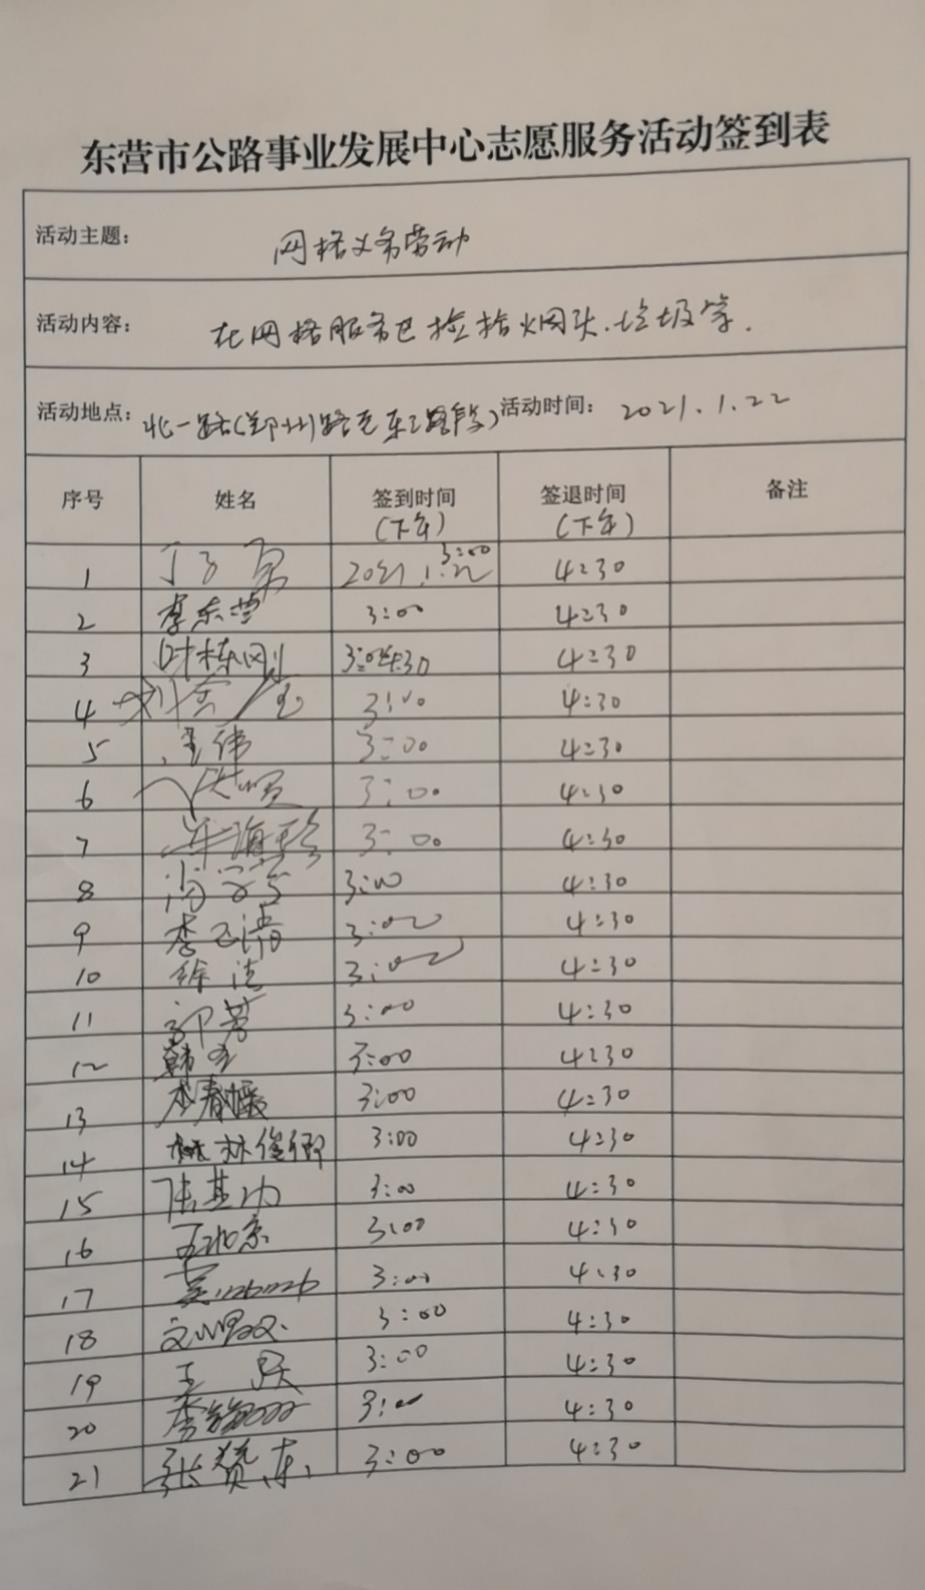 东营市公路事业发展中心志愿服务活动签到表
活动主题: 网格义务劳动
活动内容: 在网格服务区捡拾烟头、垃圾等.
活动地点: 北一路(郑州路至东三路段) 活动时间: 2021.1.22
序号 姓名 签到时间 签退时间 备注
(下午) (下午)
3:00
1 2021.1.22 4:30
2 李东营 3:00 4:30
3 叶栋刚 4:30
4 3:00 4:30
5 3:00 4:30
6 3:00 4:30
7 3:00 4:30
8 3:00 4:30
9 李 清 3:00 4:30
10 徐洁 3:00 4:30
11 郭芳 3:00 4:30
12 韩 3:00 4:30
13 3:00 4:30
14 林俊卿 3:00 4:30
15 张基功 3:00 4:30
16 王北京 3:00 4:30
17 3:00 4:30
18 3:00 4:30
19 王跃 3:00 4:30
20 李 3:00 4:30
21 张赞东 3:00 4:30